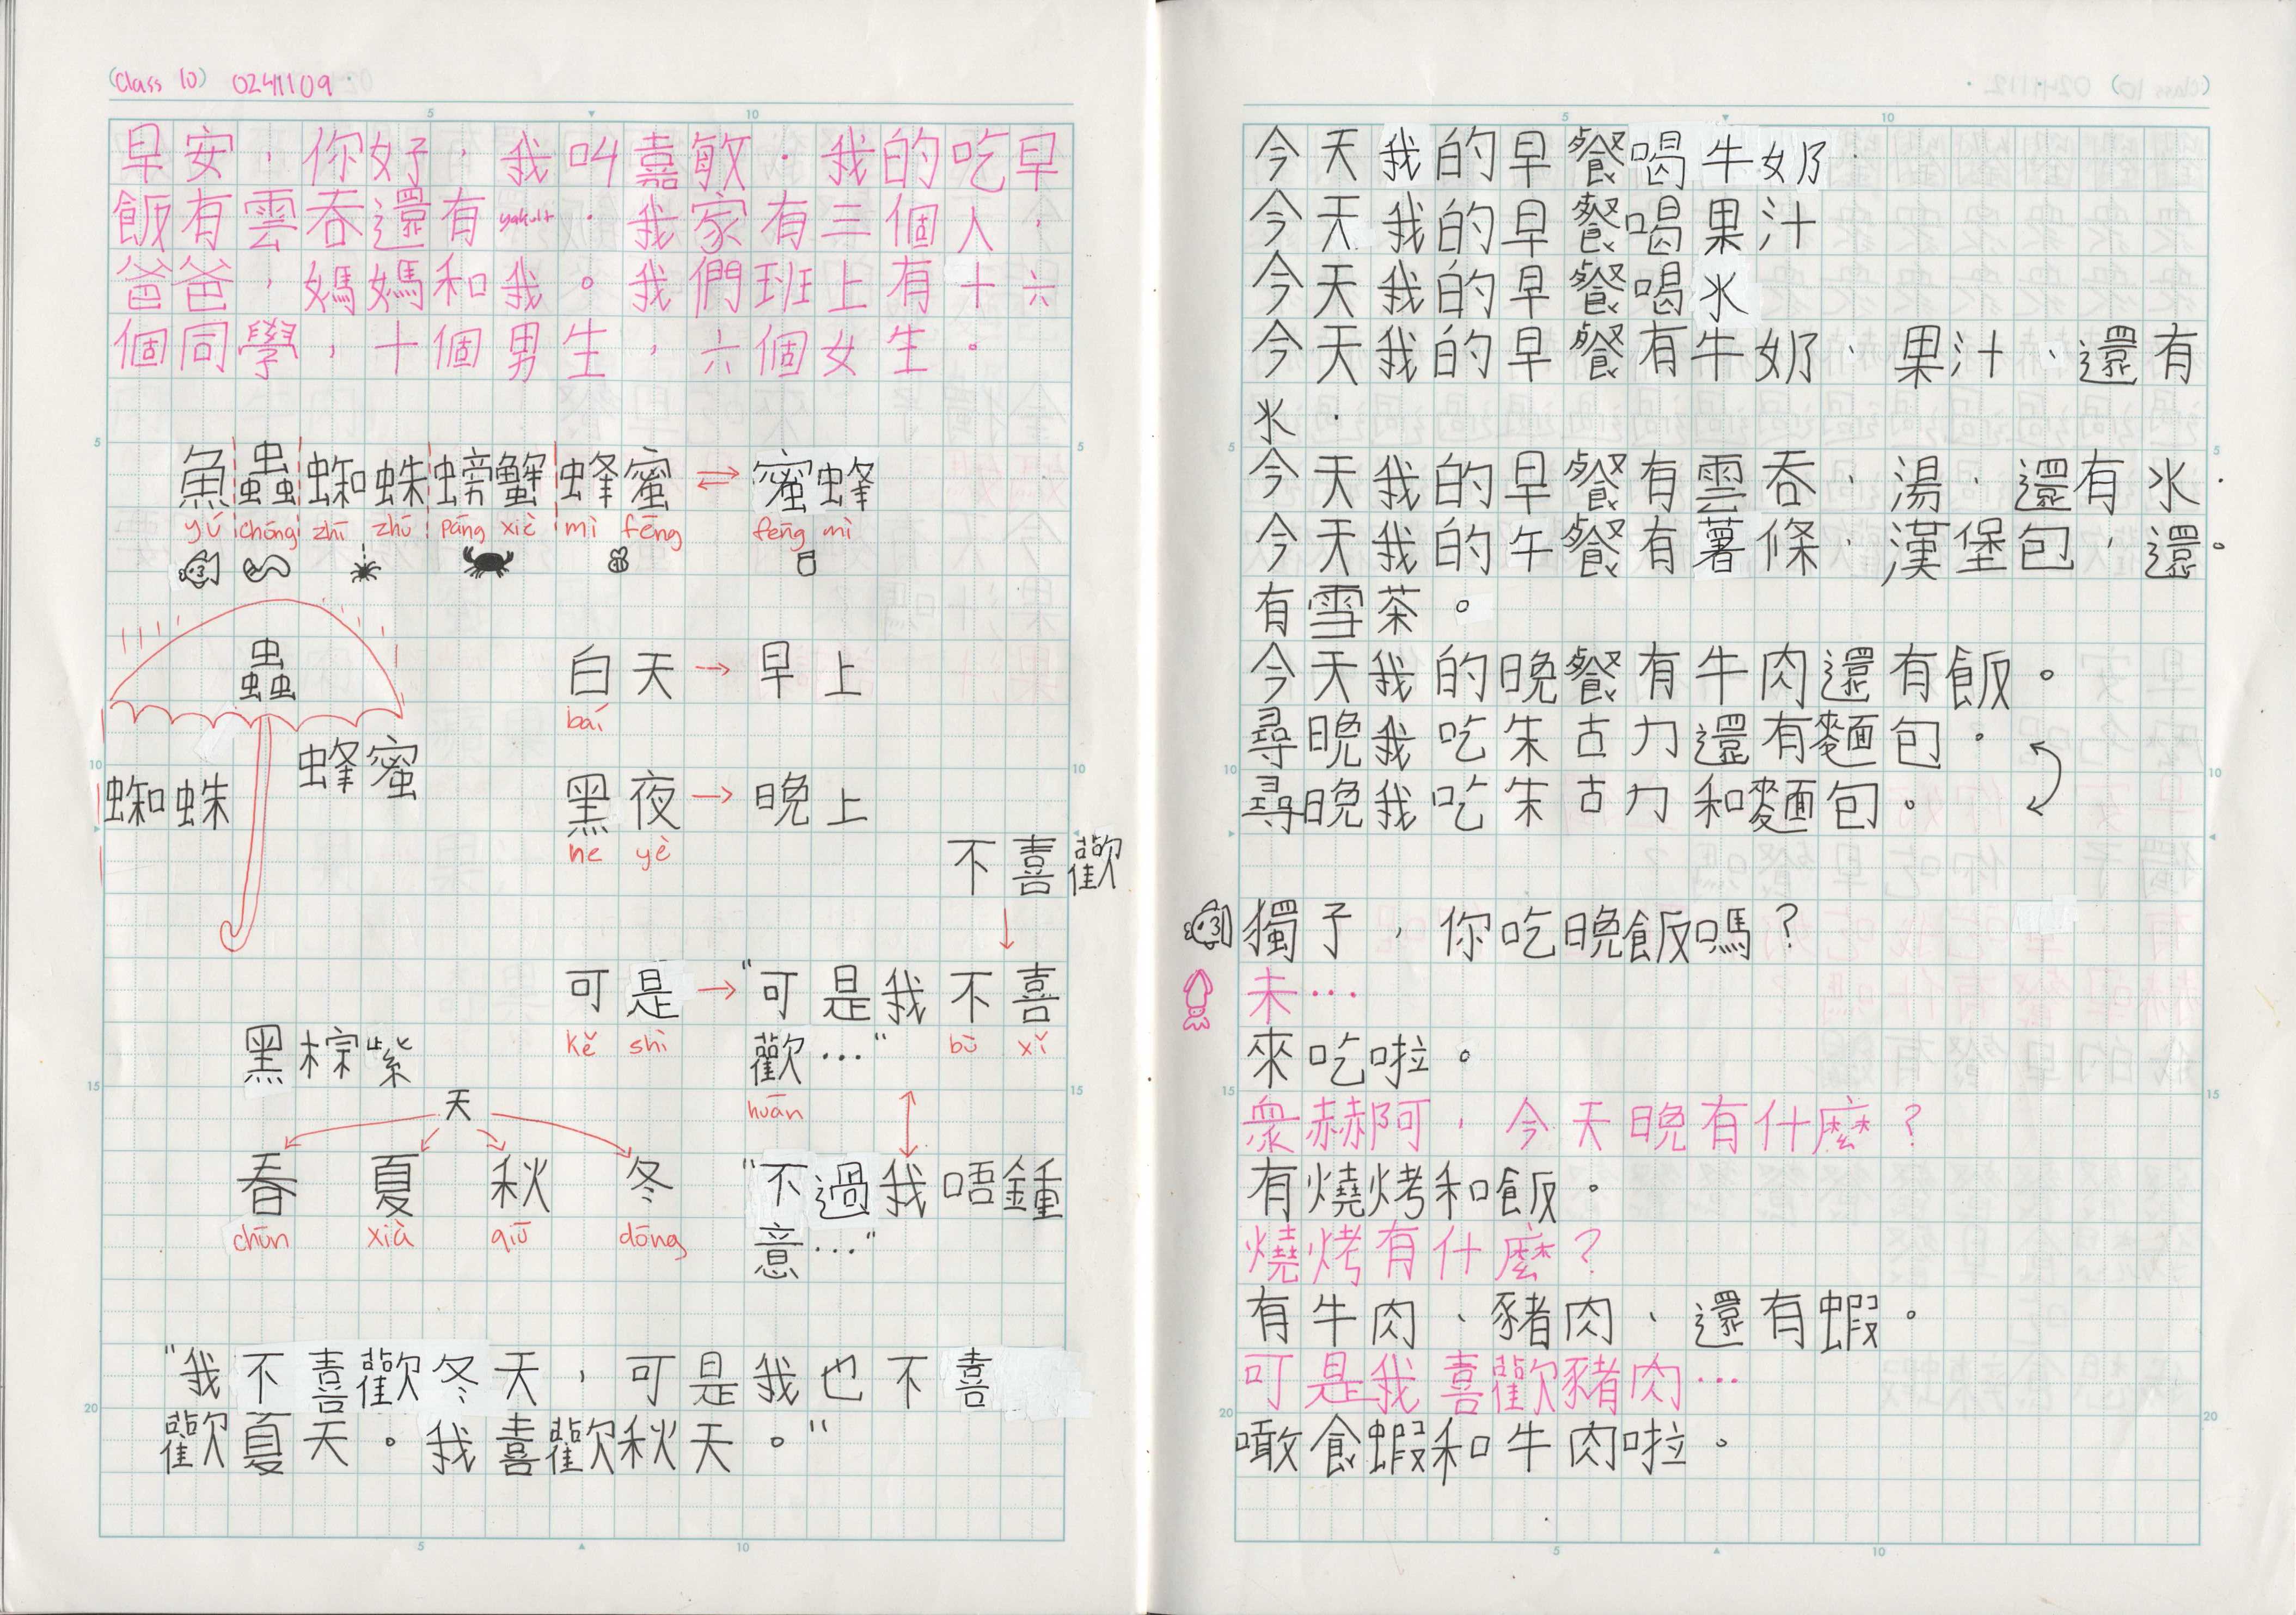 (Class 10) 02411109
早安，你好，我叫嘉敏．我的吃早
飯有雲吞還有yakult．我家有三個人，
爸爸，媽媽和我。我們班上有十六
個同學，十個男生，六個女生。
魚蟲蜘蛛螃蟹蜂蜜⇌蜜蜂
yú chóng zhī zhū páng xiè mì fēng fēng mì
蟲
蜘蛛
蜂蜜
白天→早上
baí
黑夜→晚上
he yè
不喜歡
↓
可是→"可是我不喜
kě shì bù xǐ
歡…"
huān
"不過我唔鍾
意…"
黑棕紫
天
春 夏 秋 冬
chūn xià qiū dōng
"我不喜歡冬天，可是我也不喜
歡夏天。我喜歡秋天。"
今天我的早餐喝牛奶
今天我的早餐喝果汁
今天我的早餐喝水
今天我的早餐有牛奶、果汁、還有
水．
今天我的早餐有雲吞、湯、還有水．
今天我的午餐有薯條，漢堡包，還
有雪茶。
今天我的晚餐有牛肉還有飯。
尋晚我吃朱古力還有麵包．
尋晚我吃朱古力和麵包。
獨子，你吃晚飯嗎？
未…
來吃啦。
衆赫阿，今天晚有什麼？
有燒烤和飯。
燒烤有什麼？
有牛肉、豬肉、還有蝦。
可是我喜歡豬肉…
噉食蝦和牛肉啦。